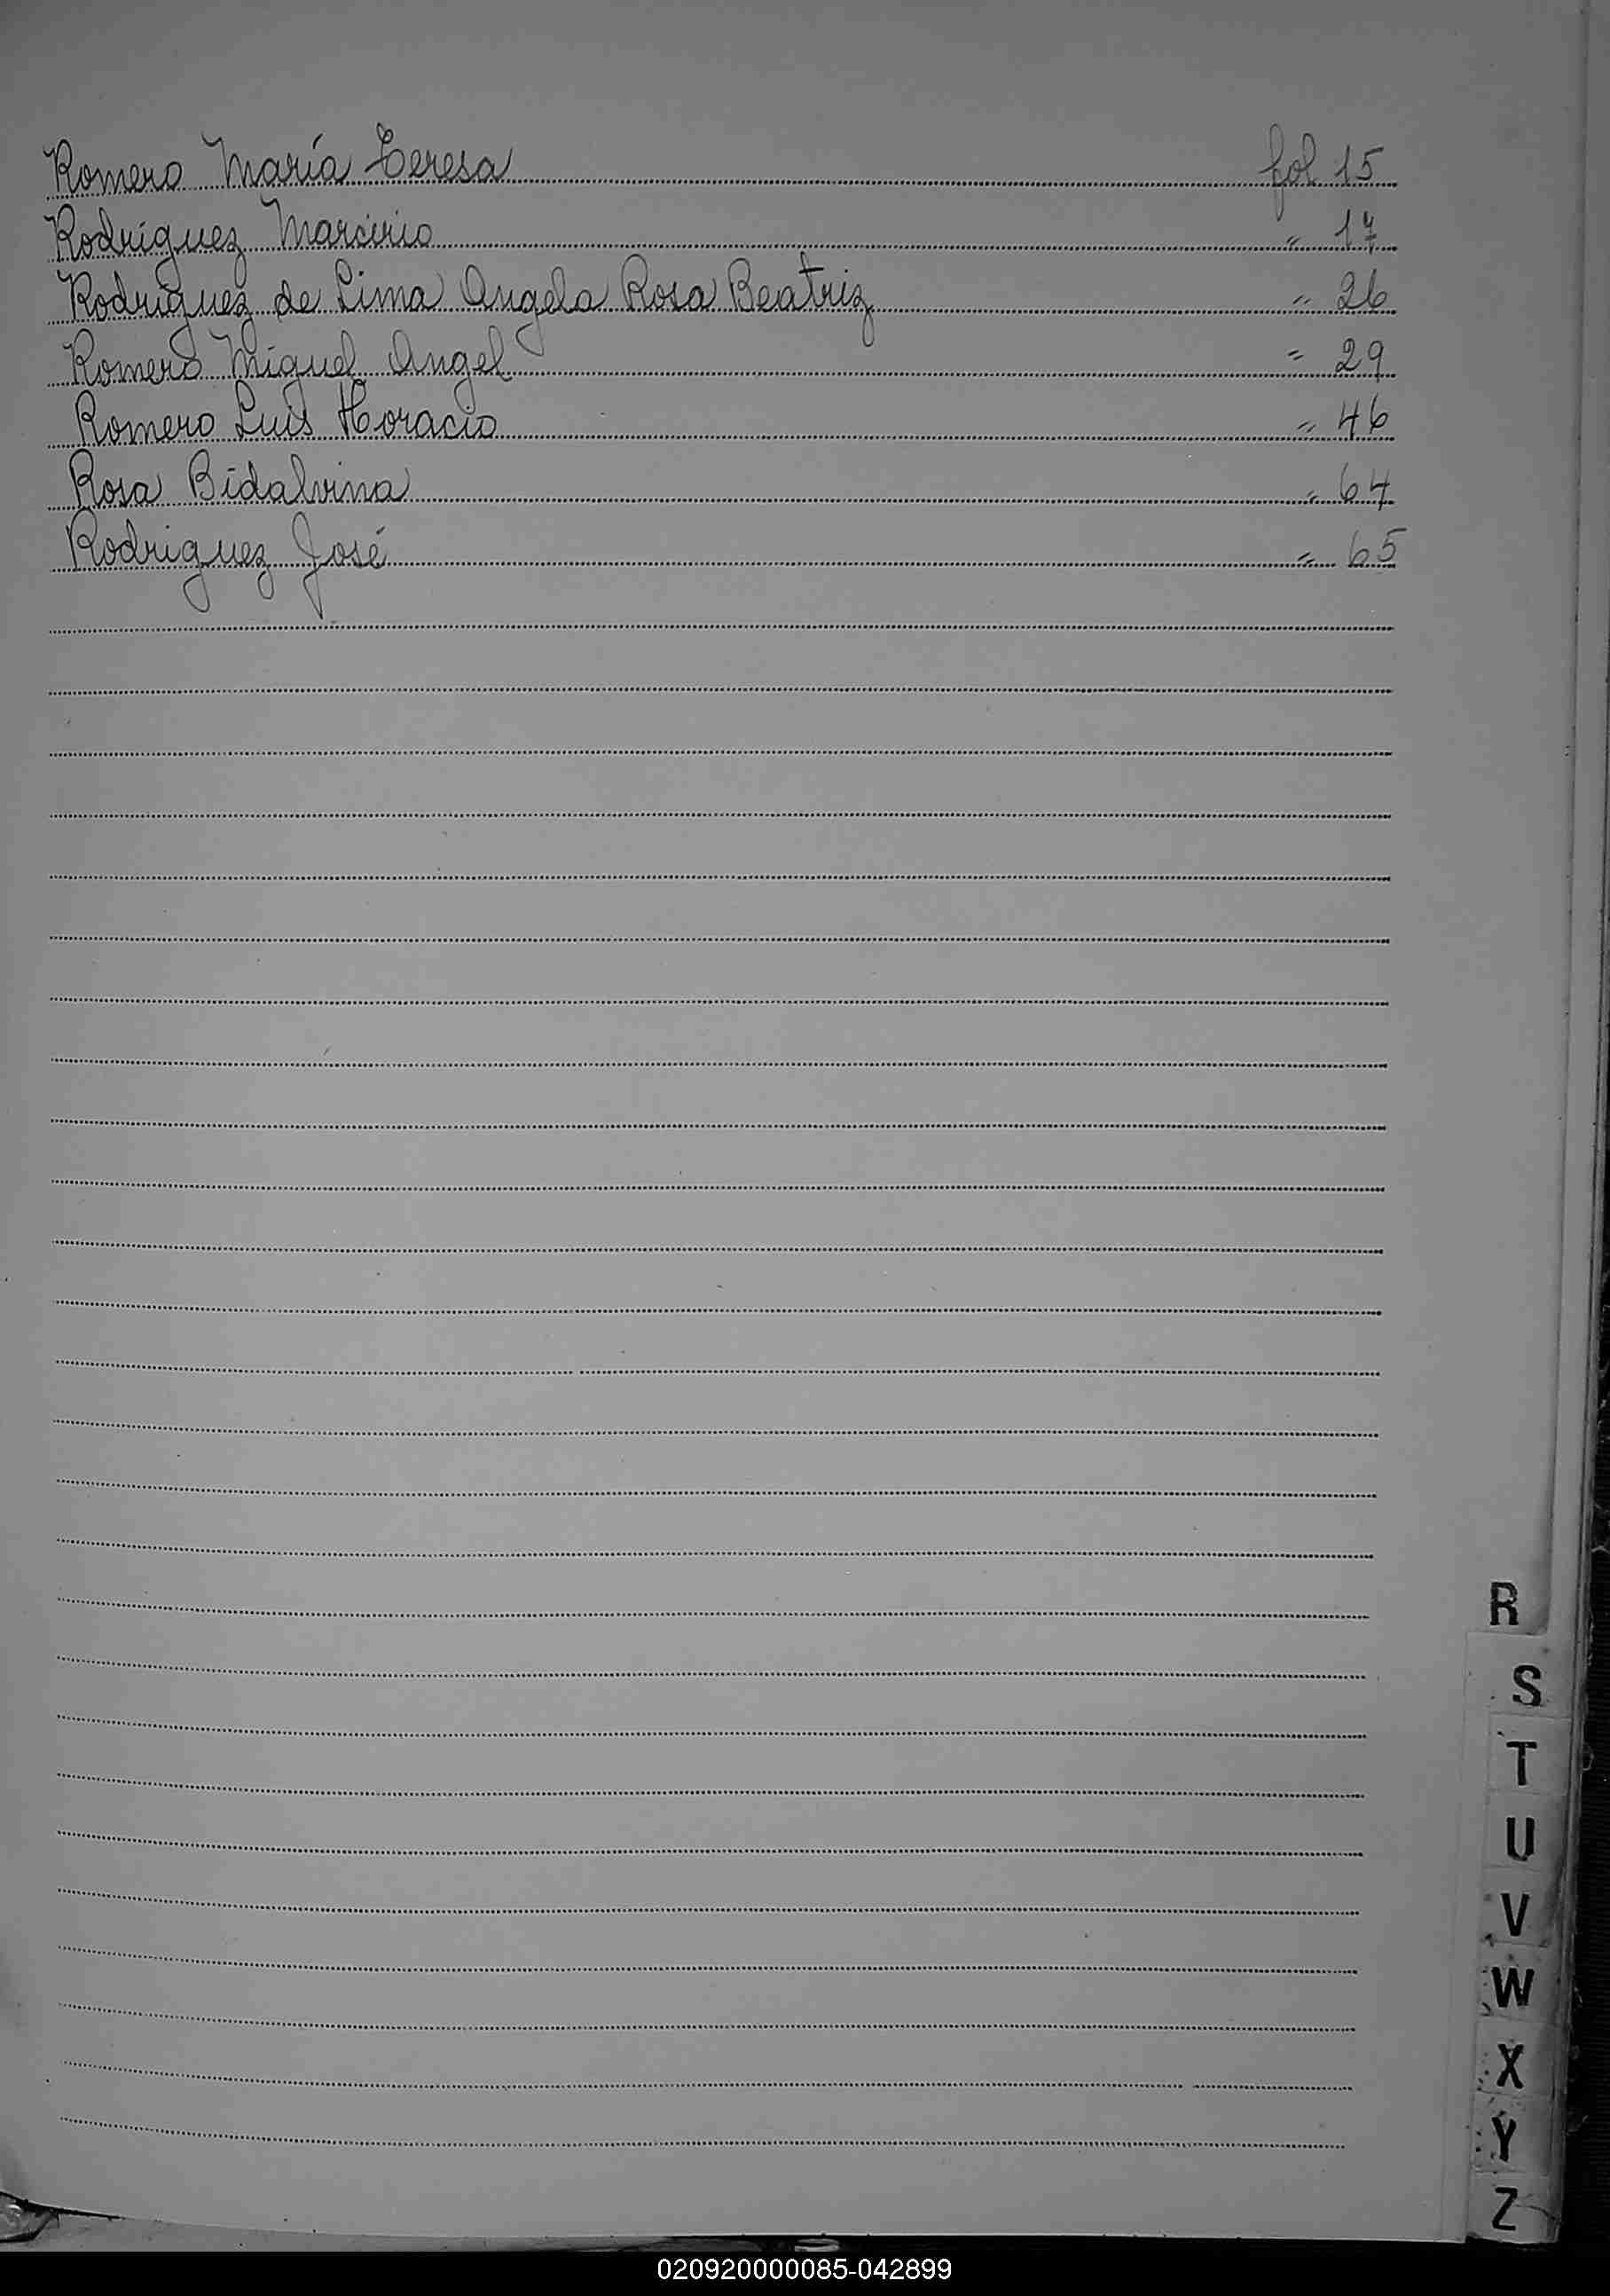 Romero María Teresa fol 15
Rodríguez Marcirio " 17
Rodríguez de Lima Angela Rosa Beatriz " 26
Romero Miguel Angel " 29
Romero Luis Horacio " 46
Rosa Bidalvina " 64
Rodriguez José " 65
R
S
T
U
V
W
X
Y
Z
020920000085-042899